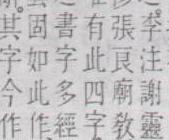 李注謝靈
張良廟敎
有此四字
書字多經
固如此作
其字今作